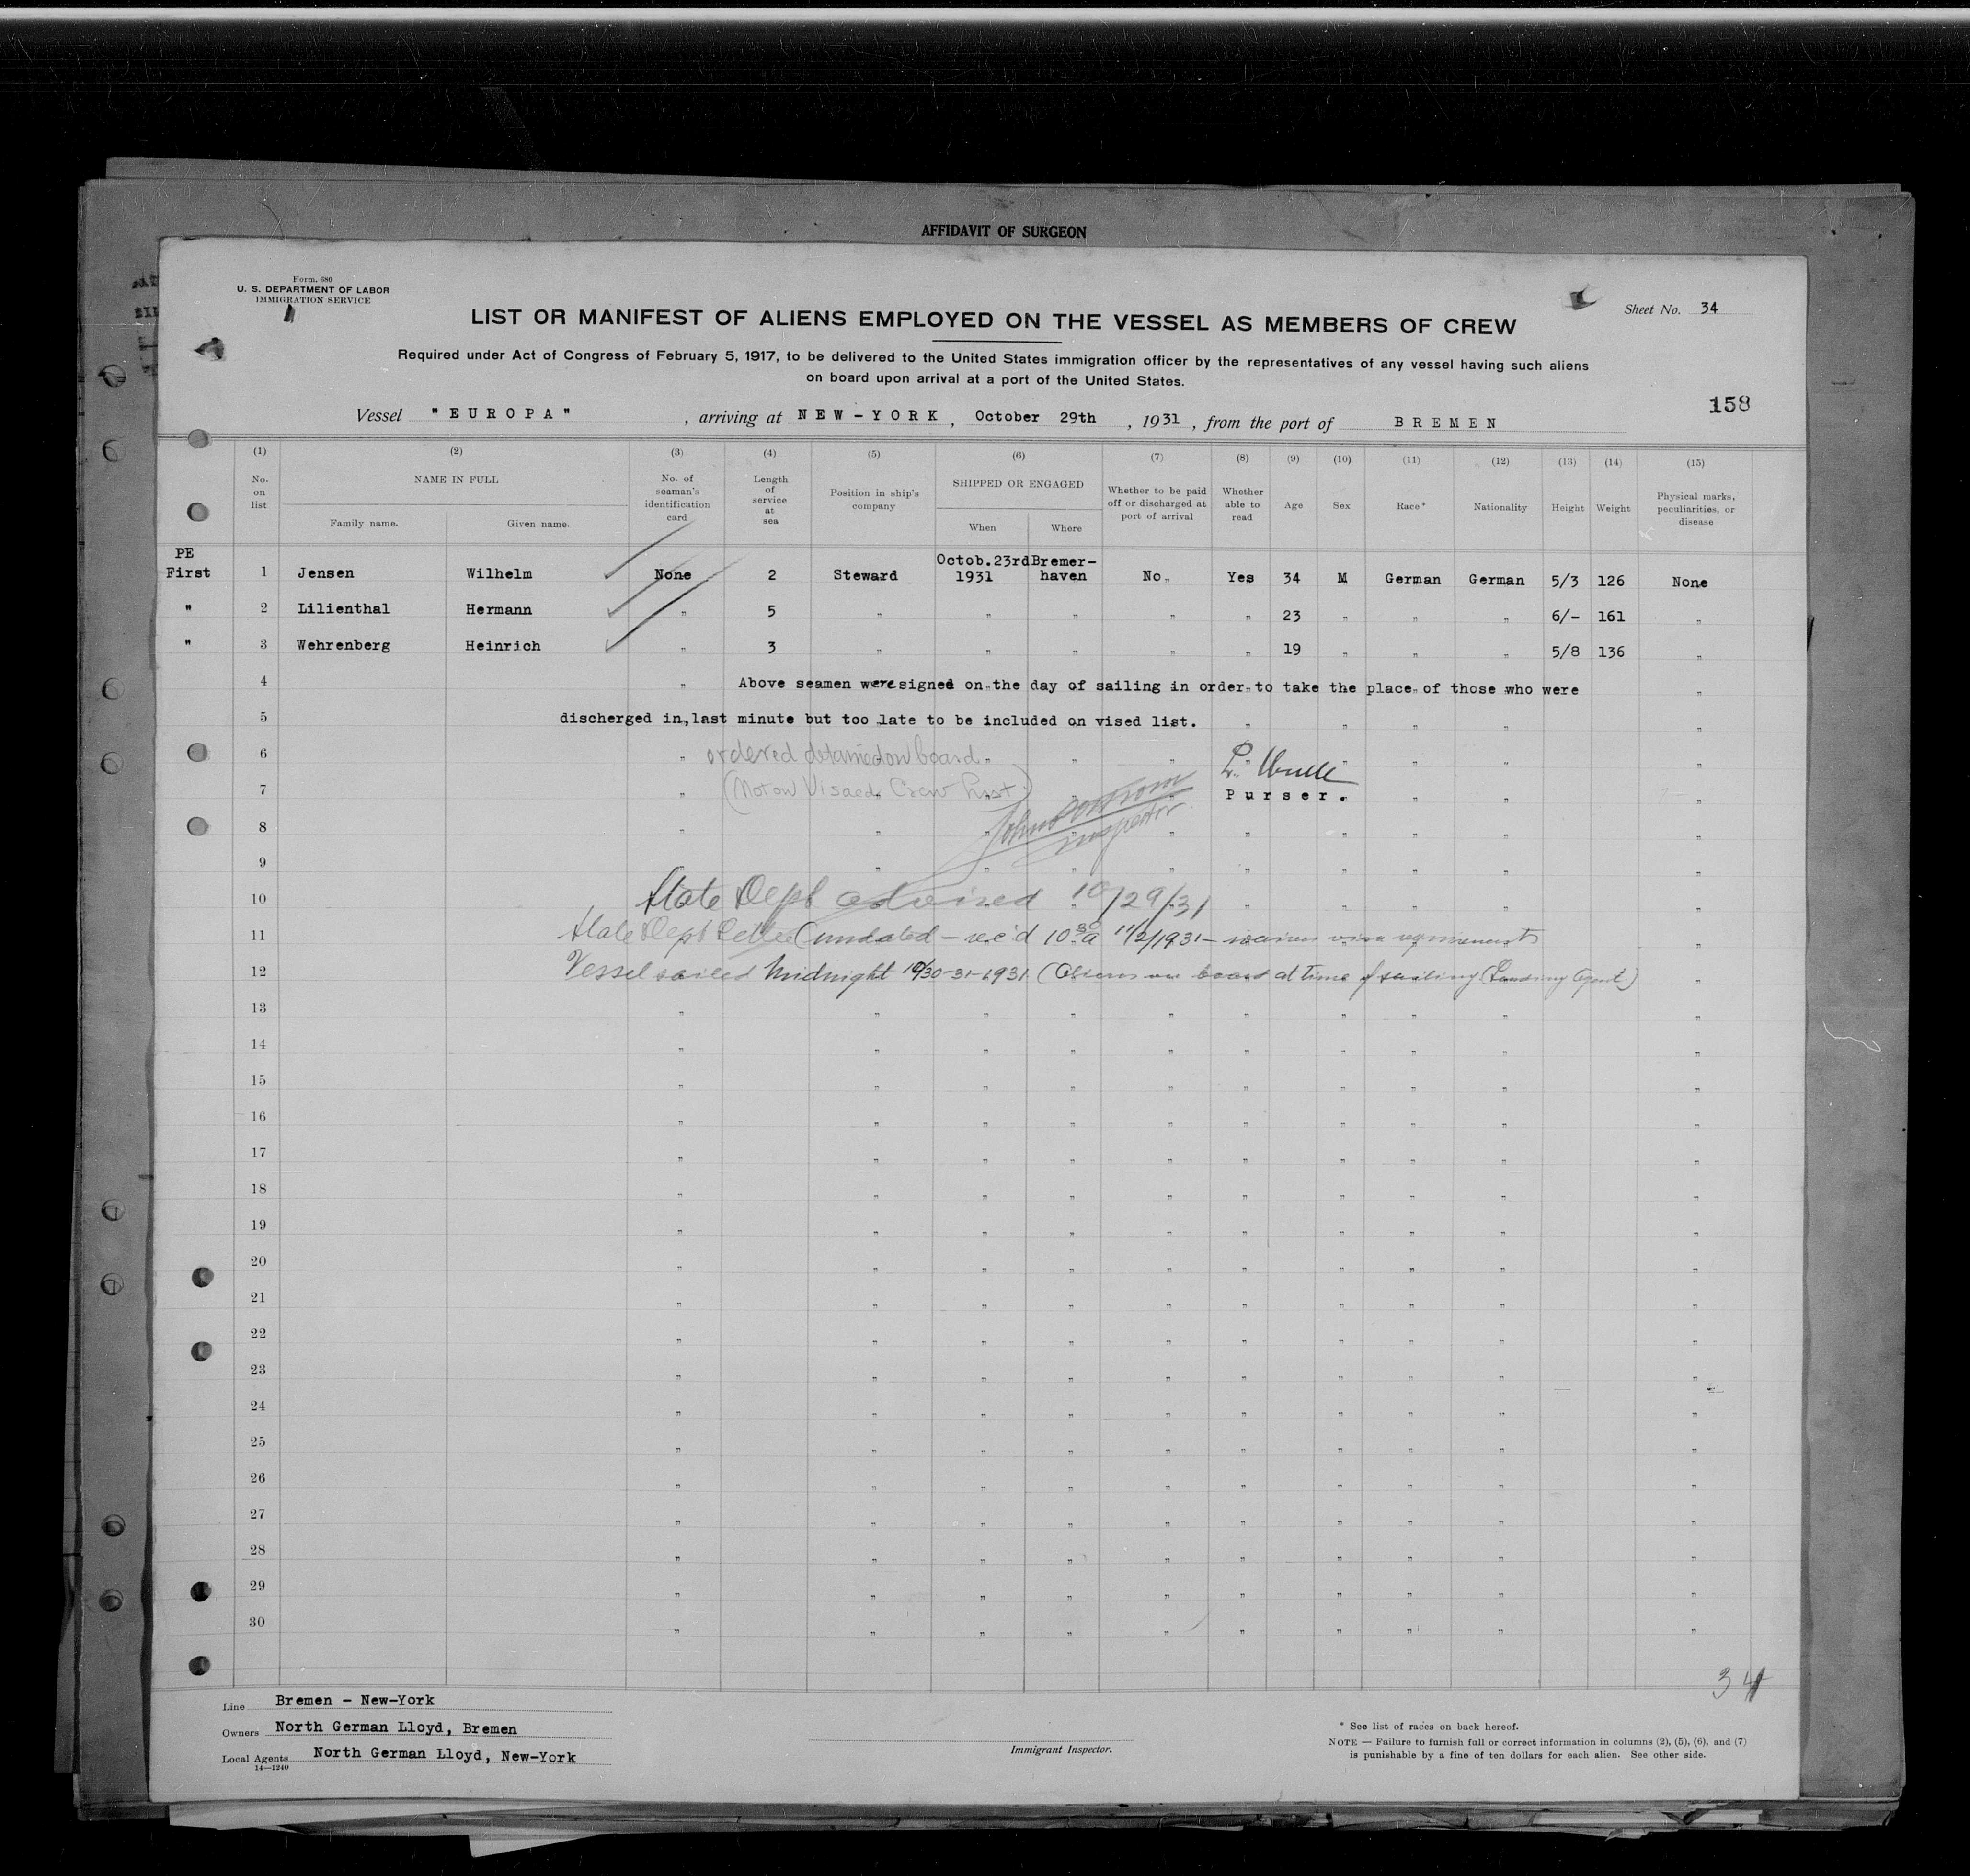 AFFIDAVIT OF SURGEON
Form. 680
U. S. DEPARTMENT OF LABOR
IMMIGRATION SERVICE
Sheet No. 34
LIST OR MANIFEST OF ALIENS EMPLOYED ON THE VESSEL AS MEMBERS OF CREW
Required under Act of Congress of February 5, 1917, to be delivered to the United States immigration officer by the representatives of any vessel having such aliens
on board upon arrival at a port of the United States.
158
Vessel "EUROPA", arriving at NEW-YORK, October 29th, 1931, from the port of BREMEN
(1) (2) (3) (4) (5) (6) (7) (8) (9) (10) (11) (12) (13) (14) (15)
No. on list NAME IN FULL Family name. Given name. No. of seaman's identification card Length of service at sea Position in ship's company SHIPPED OR ENGAGED When Where Whether to be paid off or discharged at port of arrival Whether able to read Age Sex Race* Nationality Height Weight Physical marks, peculiarities, or disease
PE
First 1 Jensen Wilhelm None 2 Steward Octob.23rd 1931 Bremerhaven No. Yes 34 M German German 5/3 126 None
" 2 Lilienthal Hermann " 5 " " " " " 23 " " " 6/- 161 "
" 3 Wehrenberg Heinrich " 3 " " " " " 19 " " " 5/8 136 "
4 " Above seamen were signed on the day of sailing in order to take the place of those who were "
5 discharged in last minute but too late to be included on vised list. " " " " "
6 " ordered detained on board
7 " (Not on Visaed Crew List) Purser.
8 Inspector
9
10 State Dept advised 10/29/31
11 State Dept Letter (undated - rec'd 10:30 a 11/2/1931 - waives visa requirements
12 Vessel sailed Midnight 10/30-31-1931 (Aliens on board at time of sailing (Landing Agent)
13
14
15
16
17
18
19
20
21
22
23
24
25
26
27
28
29
30
34
Line Bremen - New-York
Owners North German Lloyd, Bremen
Local Agents North German Lloyd, New-York
14—1240
Immigrant Inspector.
* See list of races on back hereof.
NOTE — Failure to furnish full or correct information in columns (2), (5), (6), and (7)
is punishable by a fine of ten dollars for each alien. See other side.